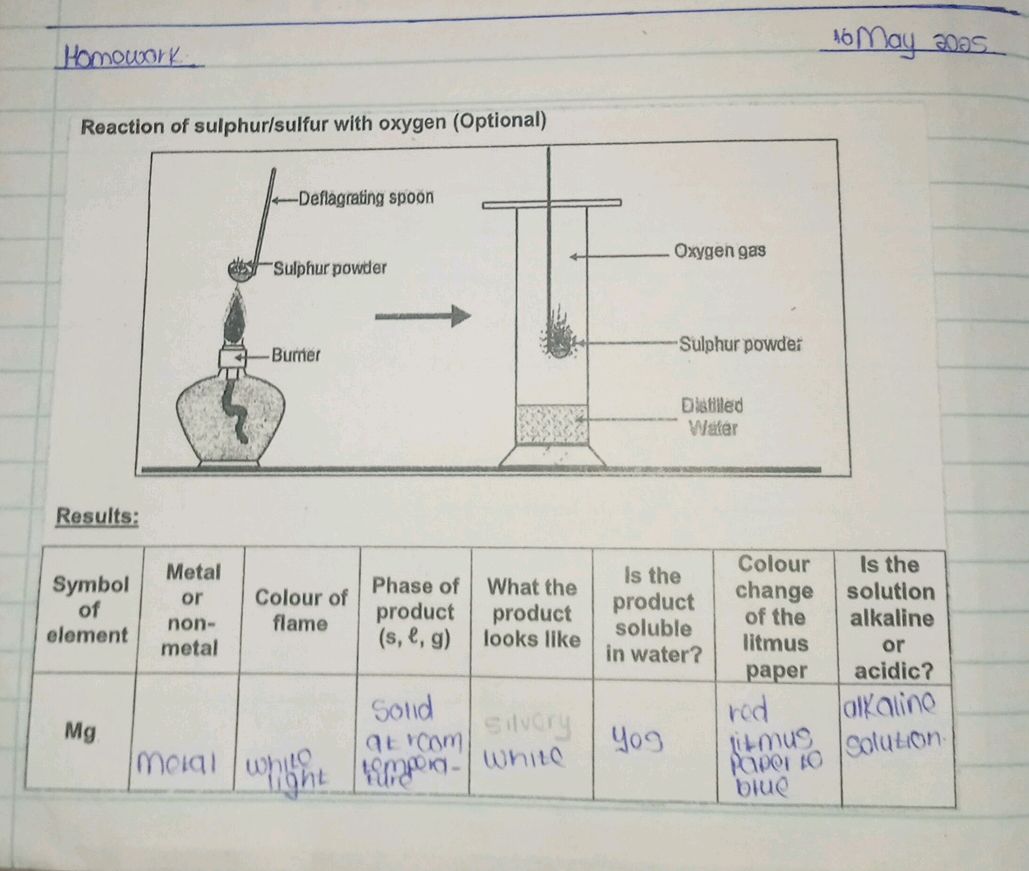 Homework
16 May 2025
Reaction of sulphur/sulfur with oxygen (Optional)
Deflagrating spoon
Sulphur powder
Burner
Oxygen gas
Sulphur powder
Distilled
Water
Results:
Symbol
of
element
Metal
or
non-
metal
Colour of
flame
Phase of
product
(s, ℓ, g)
What the
product
looks like
Is the
product
soluble
in water?
Colour
change
of the
litmus
paper
Is the
solution
alkaline
or
acidic?
Mg
Metal
white
light
Solid
at room
tempera-
ture
silvery
white
Yes
red
litmus
paper to
blue
alkaline
solution.